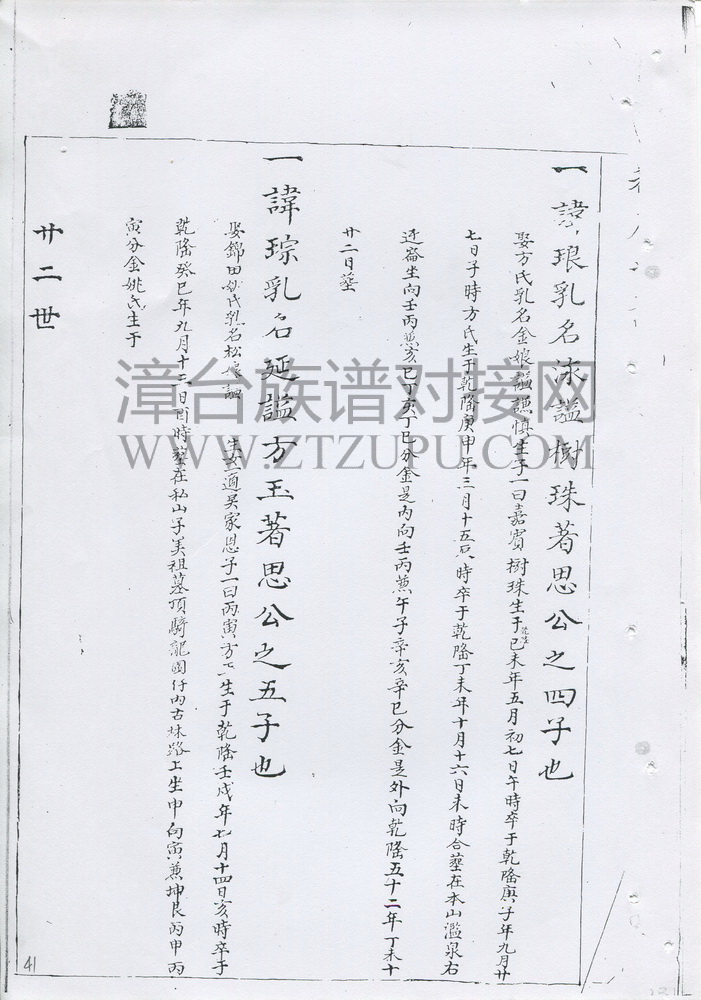 一諱琅乳名泳謚樹珠著思公之四子也
娶方氏乳名金娘謚謙慎生子一曰嘉賓 樹珠生于乾隆己未年五月初七日午時卒于乾隆庚子年九月廿
七日子時方氏生于乾隆庚申年三月十五辰時卒于乾隆丁未年十月十六日未時合塟在本山濫泉右
迊崙坐向壬丙兼亥巳丁亥丁巳分金是内向壬丙兼午子辛亥辛巳分金是外向乾隆五十二年丁未十
廿二日塟
一諱琮乳名延謚方玉著思公之五子也
娶錦田姚氏乳名松娘謚 生女一適吴家恩子一曰丙寅方玉生于乾隆壬戌年七月十四日亥時卒于
乾隆癸巳年九月十三日酉時塟在私山子美祖墓頂騎龍囷仔内古林路上坐申向寅兼坤艮丙申丙
寅分金姚氏生于
廿二世
41
漳台族谱对接网
WWW.ZTZUPU.COM